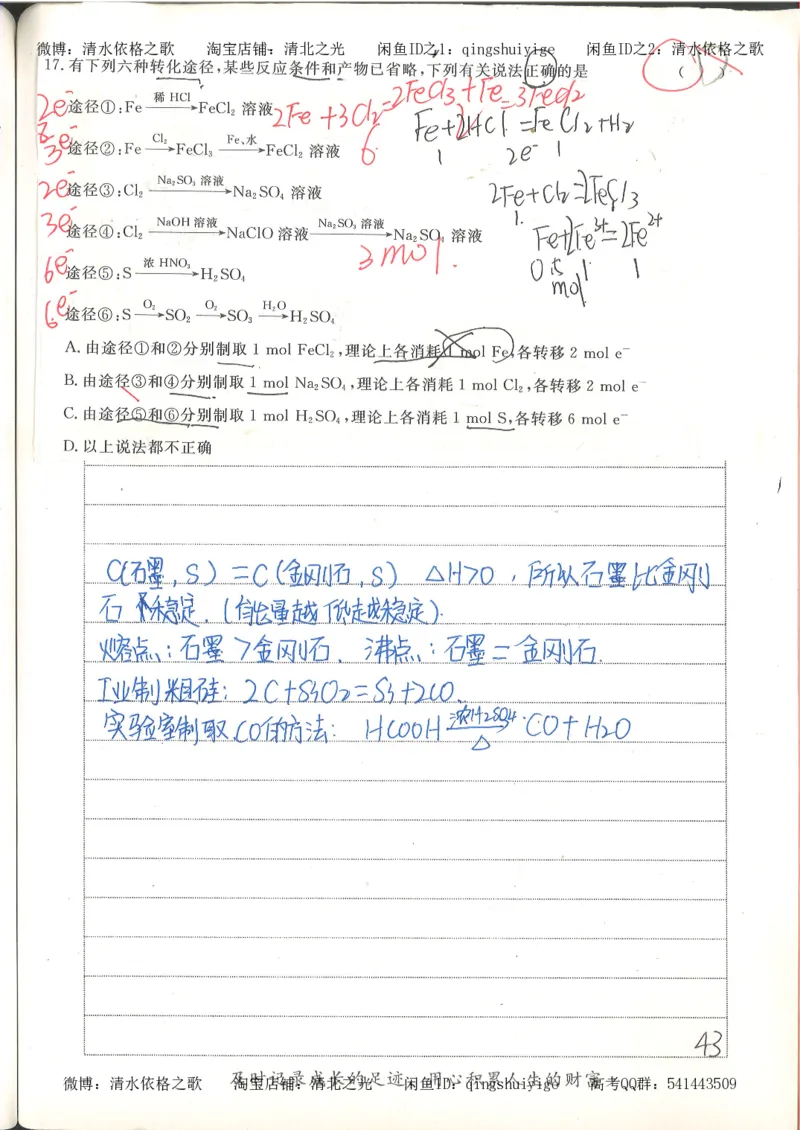 微博：清水依格之歌 淘宝店铺：清北之光 闲鱼ID之1：qingshuiyige 闲鱼ID之2：清水依格之歌
17.有下列六种转化途径,某些反应条件和产物已省略,下列有关说法正确的是 ( )
2FeCl3+Fe=3FeCl2
2e⁻ 途径①:Fe —稀 HCl→ FeCl₂ 溶液 2Fe+3Cl₂= Fe+2HCl=FeCl₂+H₂
1 2e⁻ 1
3e⁻ 途径②:Fe —Cl₂→ FeCl₃ —Fe、水→ FeCl₂ 溶液 6
2e⁻ 途径③:Cl₂ —Na₂SO₃ 溶液→ Na₂SO₄ 溶液 2Fe+Cl₂=2FeCl3
1.
3e⁻ 途径④:Cl₂ —NaOH 溶液→ NaClO 溶液 —Na₂SO₃ 溶液→ Na₂SO₄ 溶液 Fe+2Fe³⁺=2Fe²⁺
3mol. 0.5 1 1
mol
6e⁻ 途径⑤:S —浓 HNO₃→ H₂SO₄
6e⁻ 途径⑥:S —O₂→ SO₂ —O₂→ SO₃ —H₂O→ H₂SO₄
A. 由途径①和②分别制取 1 mol FeCl₂,理论上各消耗 1 mol Fe,各转移 2 mol e⁻
B. 由途径③和④分别制取 1 mol Na₂SO₄,理论上各消耗 1 mol Cl₂,各转移 2 mol e⁻
C. 由途径⑤和⑥分别制取 1 mol H₂SO₄,理论上各消耗 1 mol S,各转移 6 mol e⁻
D. 以上说法都不正确
C(石墨,S)=C(金刚石,S) △H>0,所以石墨比金刚
石稳定.(能量越低越稳定).
熔点:石墨>金刚石. 沸点:石墨=金刚石.
工业制粗硅:2C+SiO₂=Si+2CO.
实验室制取CO的方法: HCOOH —浓H2SO4 △→ CO+H₂O
43
及时记录成长的足迹 用心积累人生的财富
微博：清水依格之歌 淘宝店铺：清北之光 闲鱼ID：qingshuiyige 高考QQ群：541443509